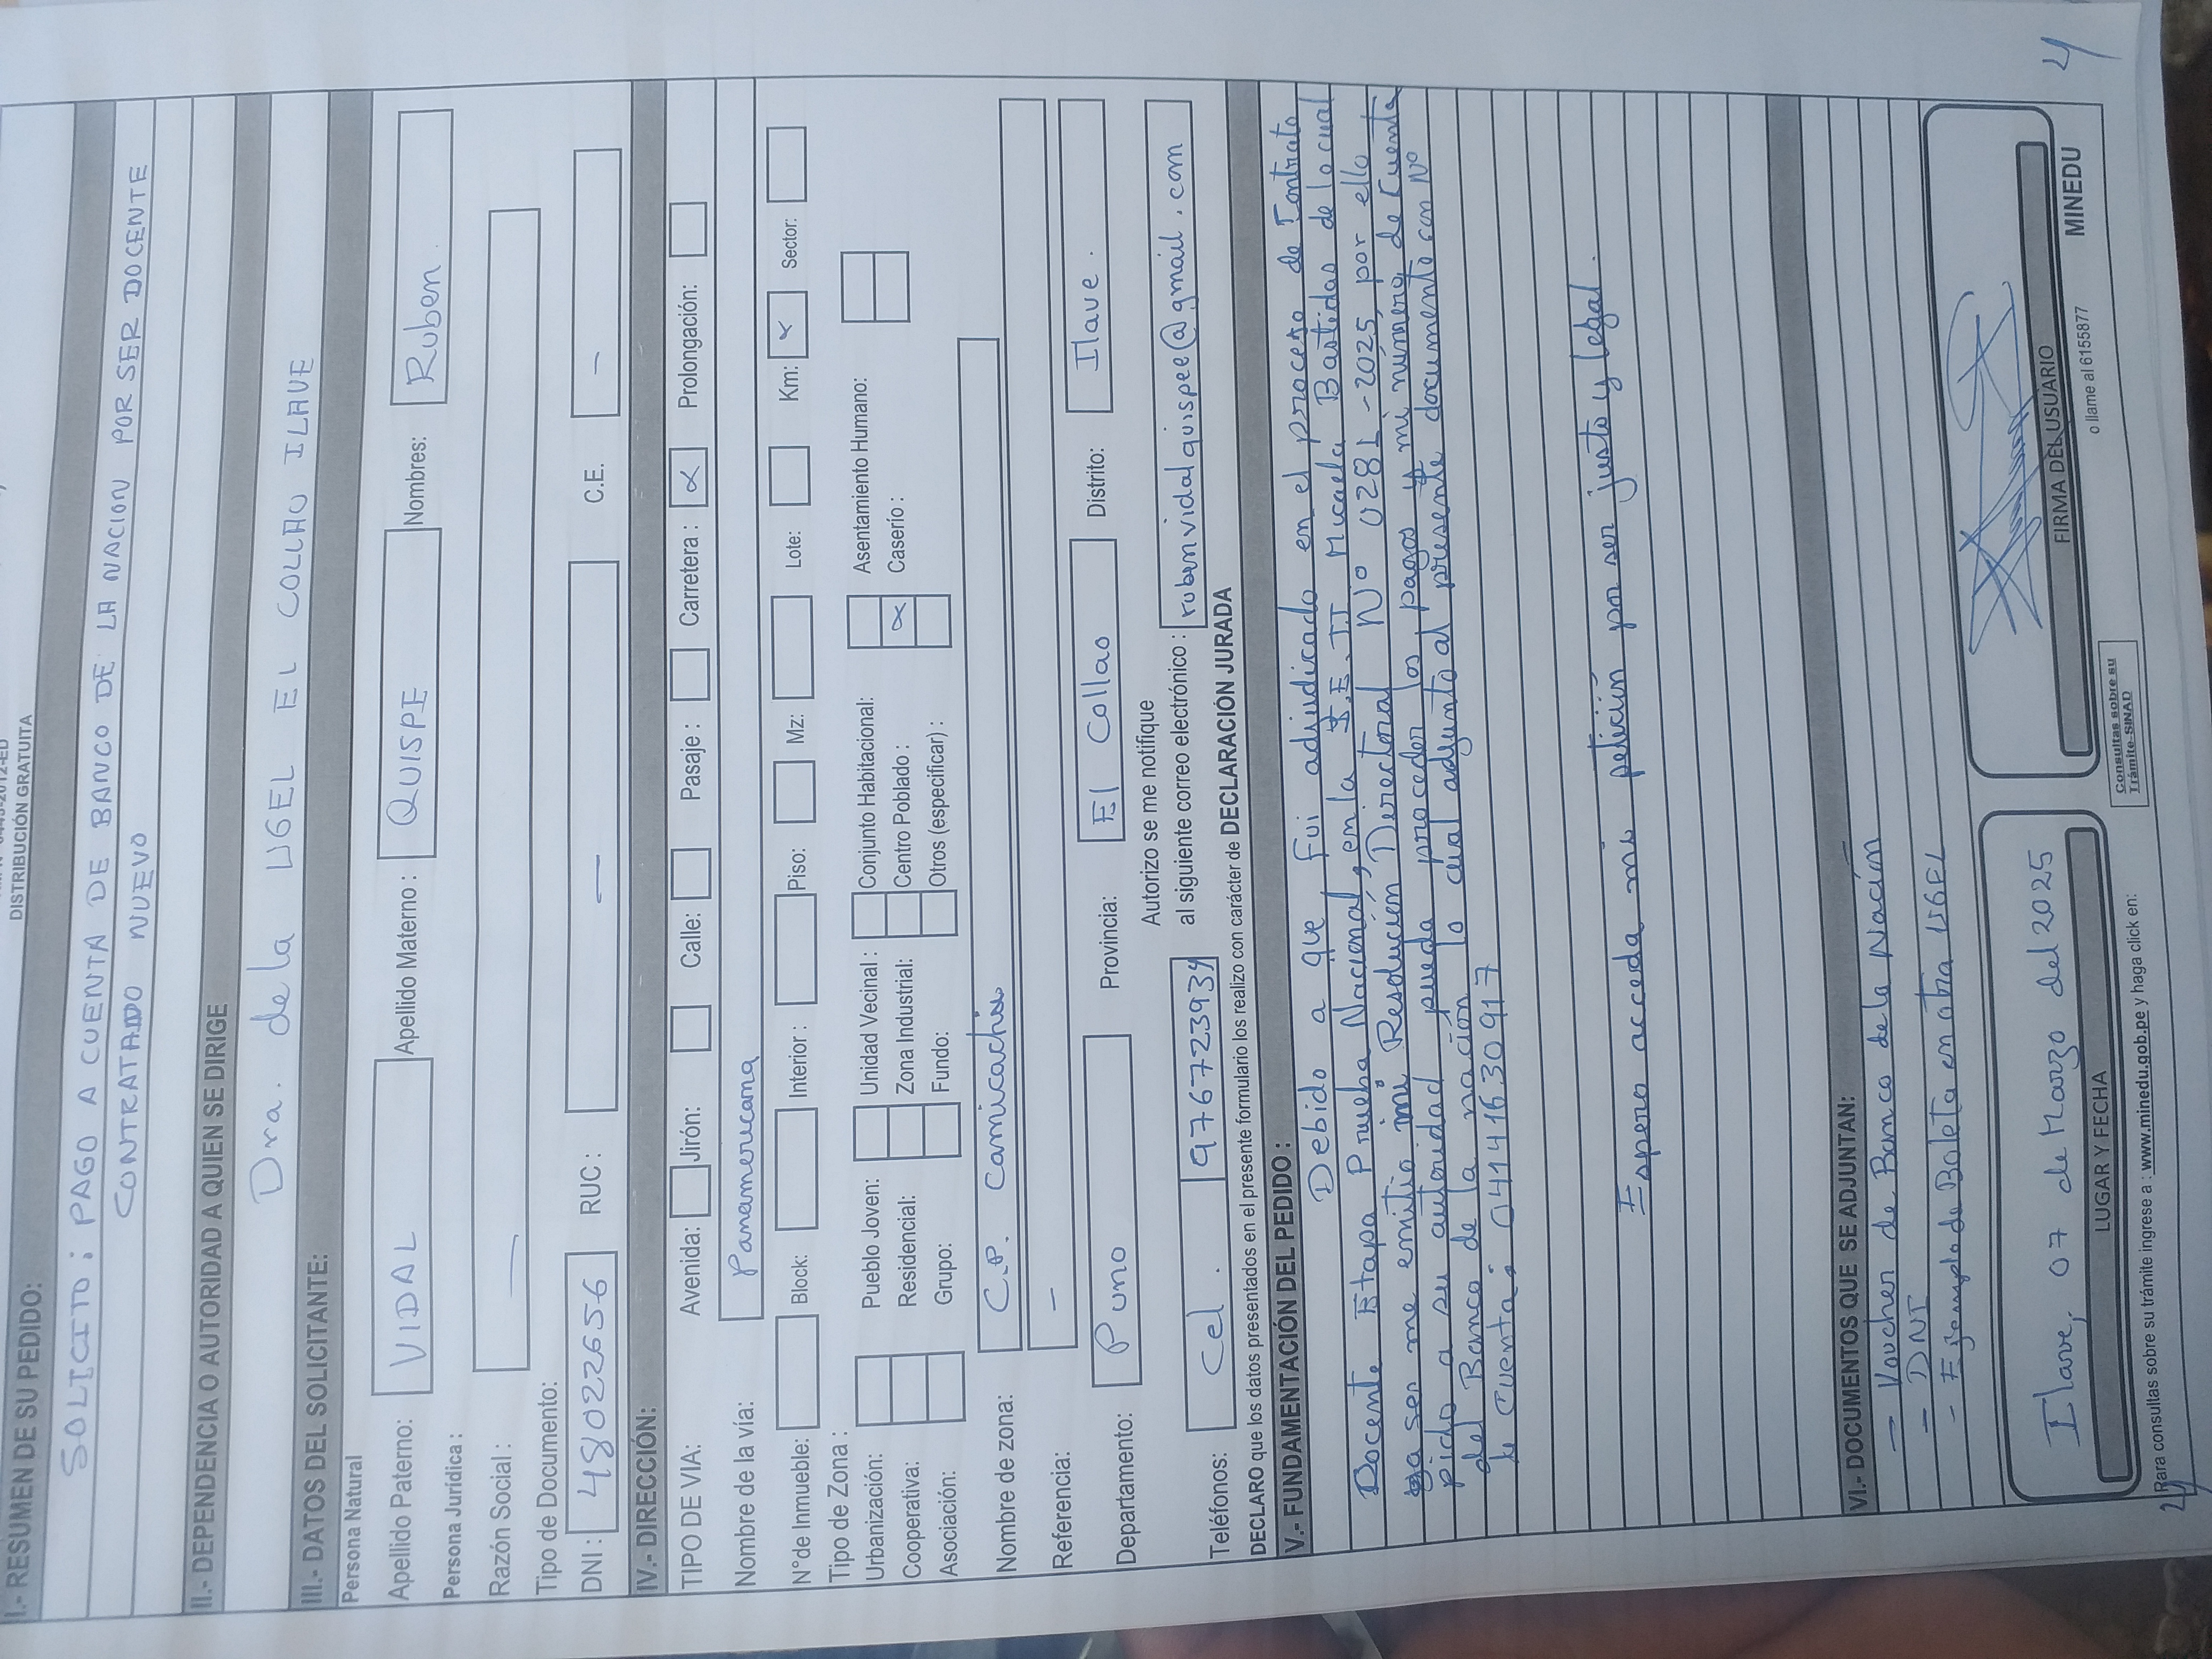 DISTRIBUCIÓN GRATUITA
I.- RESUMEN DE SU PEDIDO:
SOLICITO: PAGO A CUENTA DE BANCO DE LA NACION POR SER DOCENTE
CONTRATADO NUEVO
II.- DEPENDENCIA O AUTORIDAD A QUIEN SE DIRIGE
Dra. de la UGEL EL COLLAO ILAVE
III.- DATOS DEL SOLICITANTE:
Persona Natural
Apellido Paterno: VIDAL Apellido Materno: QUISPE Nombres: Ruben.
Persona Jurídica:
Razón Social: —
Tipo de Documento:
DNI: 48022656 RUC: — C.E. —
IV.- DIRECCIÓN:
TIPO DE VIA: Avenida: Jirón: Calle: Pasaje: Carretera: x Prolongación:
Nombre de la vía: Panamericana
N°de Inmueble: Block: Interior: Piso: Mz: Lote: Km: x Sector:
Tipo de Zona:
Urbanización: Pueblo Joven: Unidad Vecinal: Conjunto Habitacional: Asentamiento Humano:
Cooperativa: Residencial: Zona Industrial: Centro Poblado: x Caserío:
Asociación: Grupo: Fundo: Otros (especificar):
Nombre de zona: C.P. Camicachi
Referencia: —
Departamento: Puno Provincia: El Collao Distrito: Ilave.
Autorizo se me notifique
Teléfonos: Cel. 976723934 al siguiente correo electrónico: rubenvidalquispee@gmail.com
DECLARO que los datos presentados en el presente formulario los realizo con carácter de DECLARACIÓN JURADA
V.- FUNDAMENTACIÓN DEL PEDIDO:
Debido a que Fui adjudicado en el proceso de Contrato
Docente Etapa Prueba Nacional, en la I.E.II Micaela Bastidas de lo cual
ya se me emitio mi Resolución Directoral N° 0281-2025, por ello
pido a su autoridad pueda proceder los pagos y mi número de cuenta
del Banco de la nación lo cual adjunto al presente documento con N°
de Cuenta: 04141630917
Espero acceda mi petición por ser justo y legal.
VI.- DOCUMENTOS QUE SE ADJUNTAN:
- Voucher de Banco de la Nación
- DNI
- Ejemplo de Boleta en otra UGEL
Ilave, 07 de Marzo del 2025
LUGAR Y FECHA
FIRMA DEL USUARIO
Consultas sobre su
Trámite-SINAD
o llame al 6155877
MINEDU
Para consultas sobre su trámite ingrese a : www.minedu.gob.pe y haga click en: